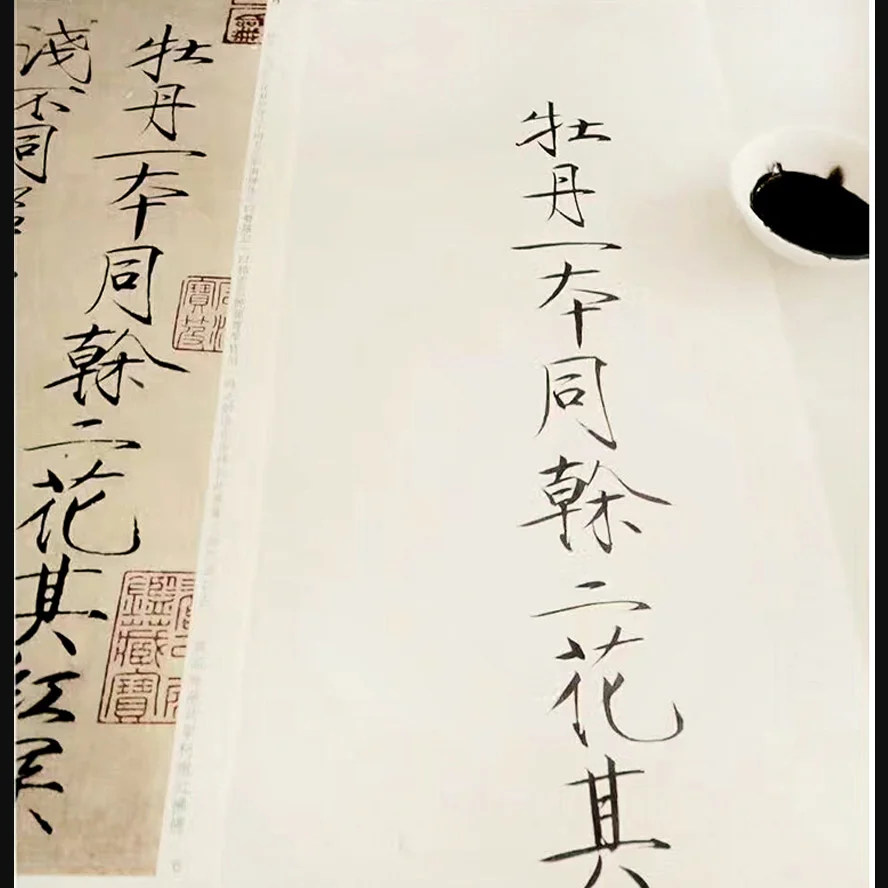 牡丹一本同榦二花其
牡丹一本同榦二花其紅深
淺不同
寶笈
鑑藏寶